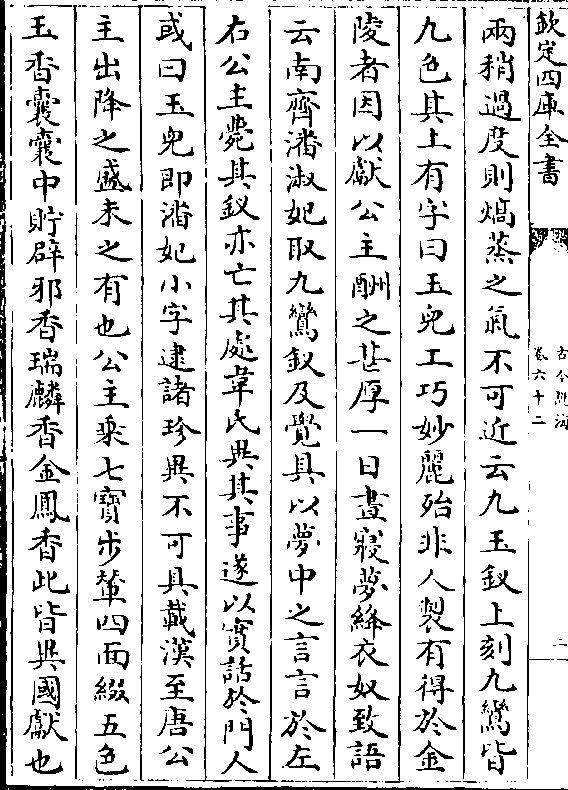 欽定四庫全書
卷六十二
兩稍過度則熇蒸之氣不可近云九玉釵上刻九鸞皆
九色其上有字曰玉兒工巧妙麗殆非人製有得於金
陵者因以獻公主酬之甚厚一日晝寢夢絳衣奴致語
云南齊潘淑妃取九鸞釵及覺具以夢中之言言於左
右公主薨其釵亦亡其處韋氏異其事遂以實話於門人
或曰玉兒即潘妃小字逮諸珍異不可具載漢至唐公
主出降之盛未之有也公主乘七寶步輦四面綴五色
玉香囊囊中貯辟邪香瑞麟香金鳳香此皆異國獻也